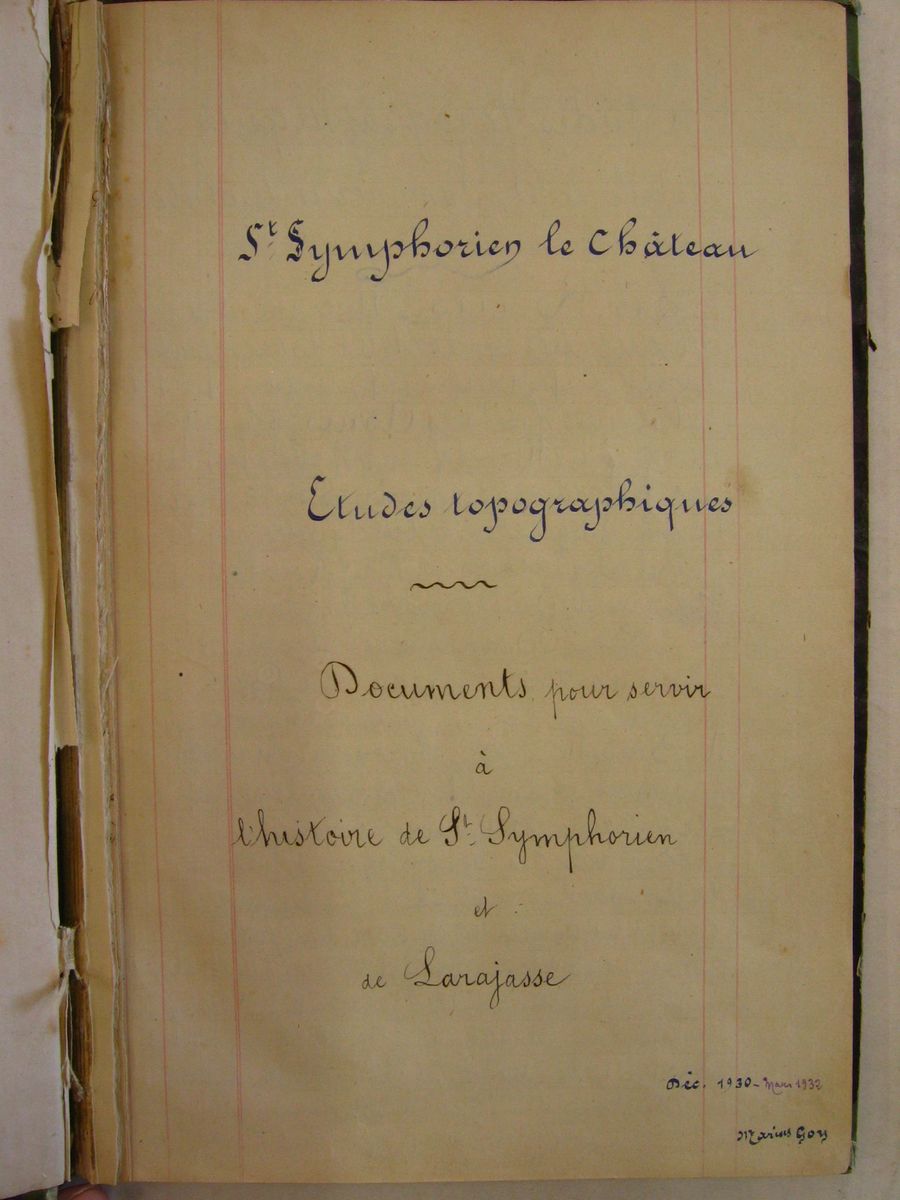 St Symphorien le Château
Etudes topographiques
Documents pour servir
à
l'histoire de St Symphorien
et
de Larajasse
Déc. 1930 - Mars 1932
Marius Goy